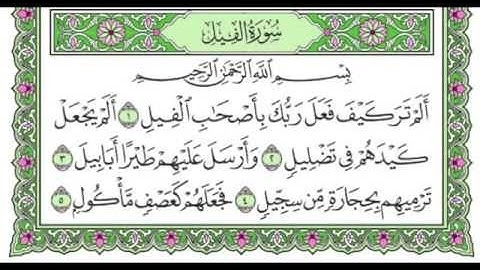 سُورَةُ الفِيل
بِسْمِ اللَّهِ الرَّحْمَٰنِ الرَّحِيمِ
أَلَمْ تَرَ كَيْفَ فَعَلَ رَبُّكَ بِأَصْحَابِ الْفِيلِ ١ أَلَمْ يَجْعَلْ
كَيْدَهُمْ فِي تَضْلِيلٍ ٢ وَأَرْسَلَ عَلَيْهِمْ طَيْرًا أَبَابِيلَ ٣
تَرْمِيهِم بِحِجَارَةٍ مِّن سِجِّيلٍ ٤ فَجَعَلَهُمْ كَعَصْفٍ مَّأْكُولٍ ٥